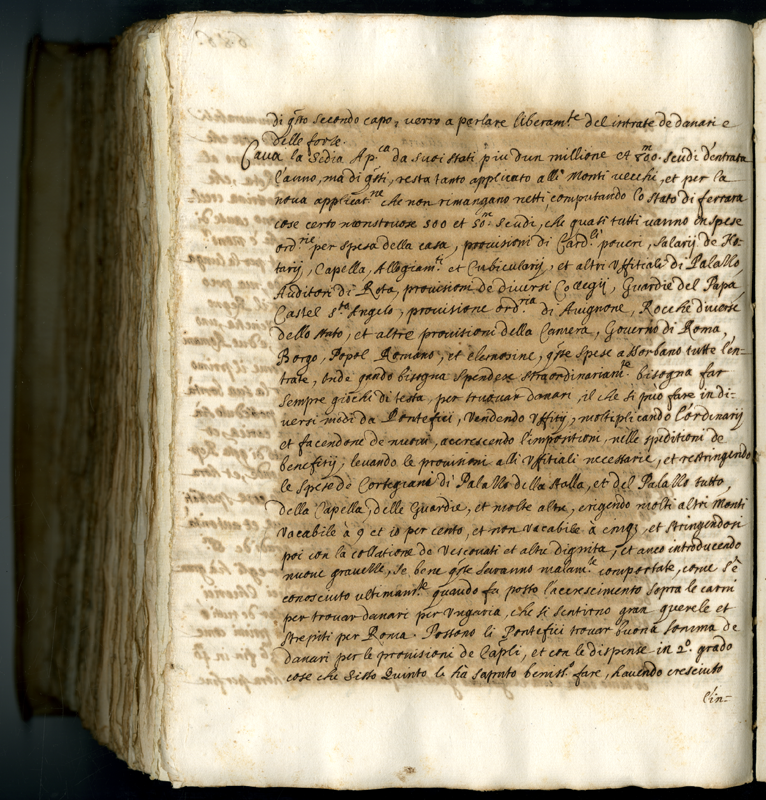 di q̃sto secondo capo, verrò a parlare liberam.te del intrate de danari e
delle forze.
Caua la Sedia Ap.ca da suoi stati piu d'un millione et 800.m scudi d'entrata
l'anno, ma di q̃sti, resta tanto applicato alli Monti uecchi, et per la
noua applicat.ne che non rimangano netti computando lo stato di ferrara
cose certo monstruose 500 et 50.m scudi, che quasi tutti uanno in spese
ord.rie per spesa della casa, prouisioni di Card.li poueri, salarij de No-
tarij, Capella, Allogiam.ti et Cubicularij, et altri Vffitiali di Palazzo,
Auditori di Rota, prouisioni de diuersi Collegij, Guardie del Papa,
Castel S.to Angelo, prouisione ord.ria di Auignone, Rocche diuerse
dello stato, et altre prouisioni della Camera, Gouerno di Roma,
Borgo, Popol Romano, et elemosine, q̃ste spese assorbano tutte l'en-
trate, onde q̃ando bisogna spendere straordinariam.te bisogna far
sempre giochi di testa, per trouar danari, il che si può fare in di-
uersi modi da Pontefici, Vendendo Vffitij, moltiplicando l'ordinarij
et facendone de nuoui, accrescendo l'impositioni, nelle speditioni de
benefitij, leuando le prouisioni alli Vffitiali necessarie, et restringendo
le spese de Cortegiani di Palazzo della stalla, et del Palazzo tutto,
della Capella, delle Guardie, et molte altre, erigendo molti altri Monti
Vacabile à 9 et io per cento, et non vacabile à et stringendosi
poi con la collatione de Vescouati et altre dignita, et anco introducendo
nuoue grauezze, se bene q̃ste saranno malam.te comportate, come s'è
conosciuto ultimam.te quando fu posto l'accrescimento sopra le carni
per trouar danari per Vngaria, che si sentirno gran querele et
strepiti per Roma. Possono li Pontefici trouar buona somma de
danari per le prouisioni de Capli, et con le dispense in 2.o grado
cose che Sisto Quinto le hà saputo beniss.o fare, hauendo cresciuto
l'in-